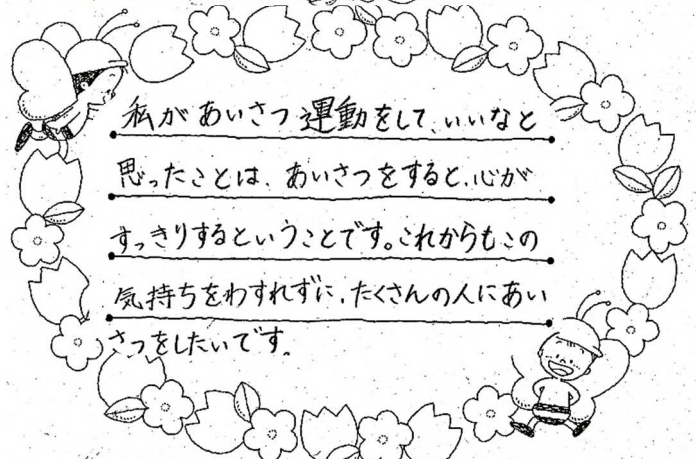 私があいさつ運動をして、いいなと
思ったことは、あいさつをすると、心が
すっきりするということです。これからもこの
気持ちをわすれずに、たくさんの人にあい
さつをしたいです。